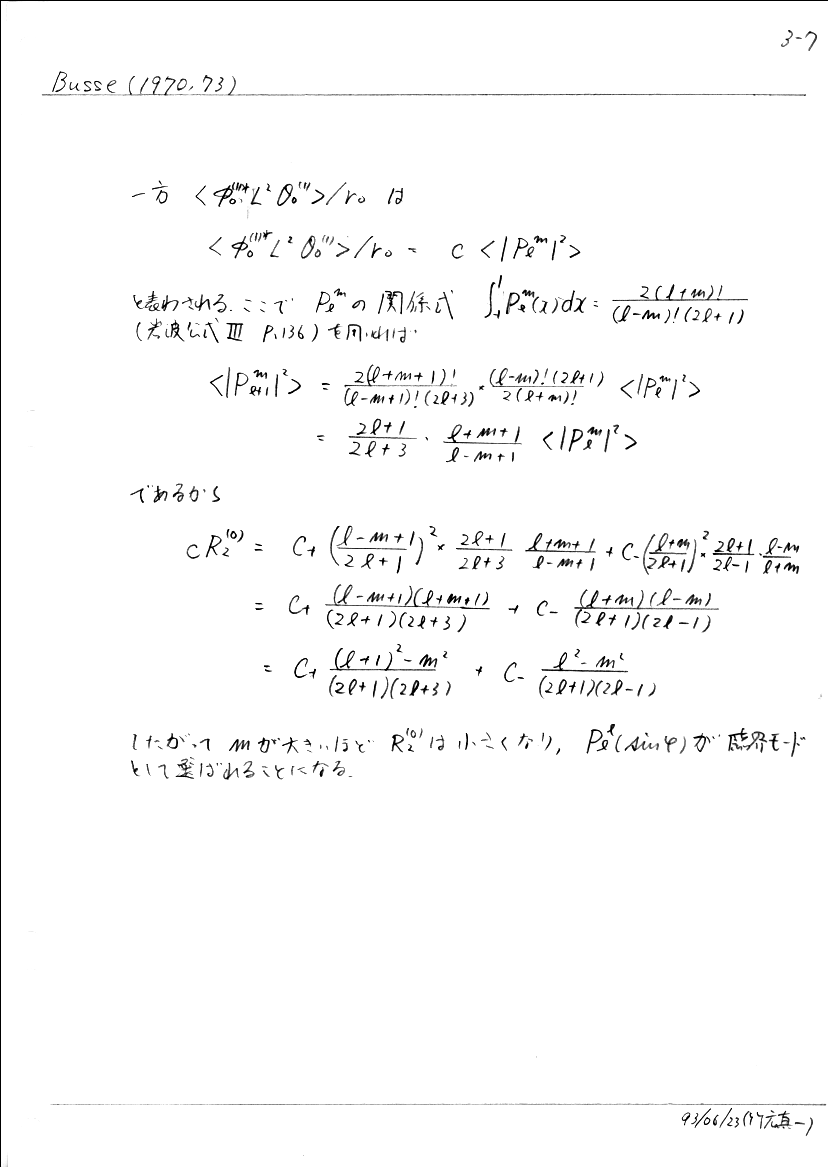 3-7
Busse (1970, 73)
一方 <Φ₀⁽¹⁾* L² Θ₀⁽¹⁾>/r₀ は
<Φ₀⁽¹⁾* L² Θ₀⁽¹⁾>/r₀ = C <|Pₗᵐ|²>
と表わされる. ここで Pₗᵐ の関係式 ∫₋₁¹ Pₗᵐ(x)dx = 2(l+m)! / (l-m)!(2l+1)
(岩波公式 III P.136) を用いれば
<|Pₗ₊₁ᵐ|²> = 2(l+m+1)! / (l-m+1)!(2l+3) × (l-m)!(2l+1) / 2(l+m)! <|Pₗᵐ|²>
= (2l+1)/(2l+3) · (l+m+1)/(l-m+1) <|Pₗᵐ|²>
であるから
C R₂⁽⁰⁾ = C₊ ((l-m+1)/(2l+1))² × (2l+1)/(2l+3) (l+m+1)/(l-m+1) + C₋ ((l+m)/(2l+1))² × (2l+1)/(2l-1) · (l-m)/(l+m)
= C₊ (l-m+1)(l+m+1) / (2l+1)(2l+3) + C₋ (l+m)(l-m) / (2l+1)(2l-1)
= C₊ ((l+1)² - m²) / (2l+1)(2l+3) + C₋ (l² - m²) / (2l+1)(2l-1)
したがって m が大きいほど R₂⁽⁰⁾ は小さくなり, Pₗˡ(sinφ) が臨界モード
として選ばれることになる.
93/06/23(竹広真一)